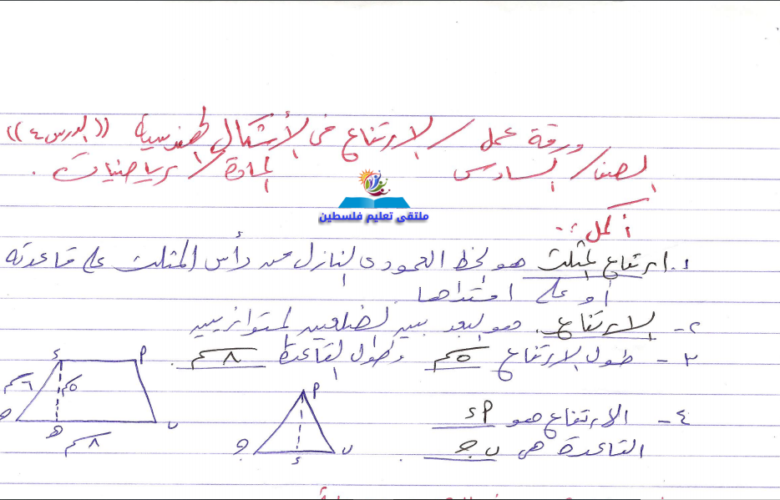 ورقة عمل / الارتفاع في الأشكال الهندسية ((الدرس ٤))
الصف / السادس المادة / رياضيات .
ملتقى تعليم فلسطين
أكمل :-
١. ارتفاع المثلث هو الخط العمودي النازل من رأس المثلث على قاعدته
أو على امتدادها .
٢- الارتفاع هو البعد بين الضلعين المتوازيين
٣- طول الارتفاع ٥سم وطول القاعدة ٨سم .
ء م
٦سم ٥سم
ج هـ ب
٨سم
٤- الارتفاع هو م ء
القاعدة هي ب ج .
م
ج ء ب